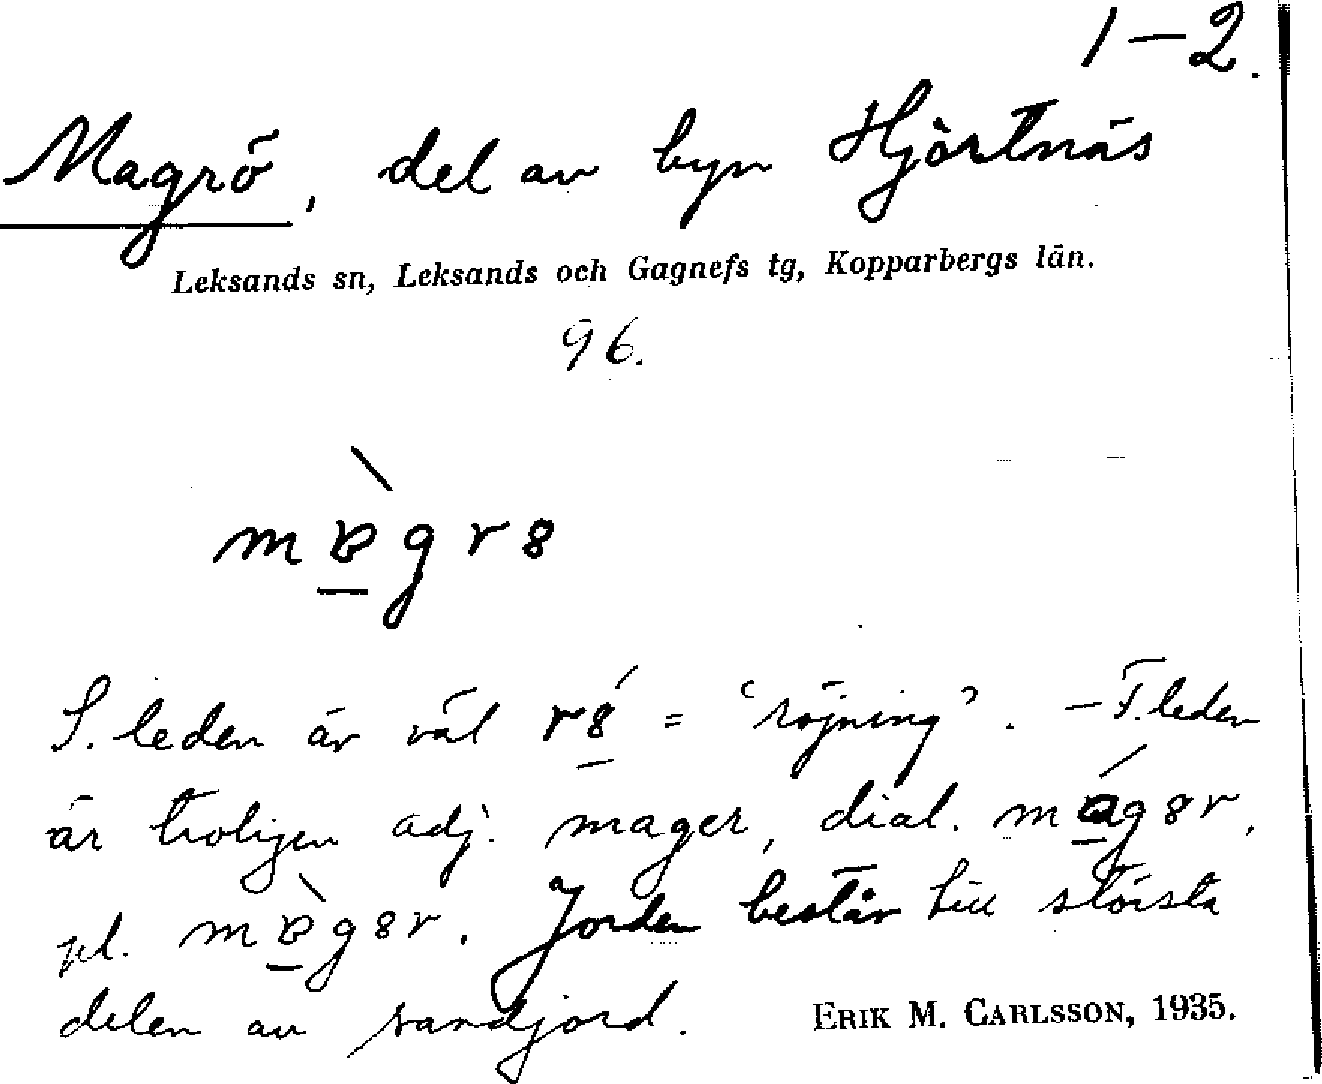 1–2.
Magrö, del av byn Hjortnäs
Leksands sn, Leksands och Gagnefs tg, Kopparbergs län.
96.
mɐ̱̀gr8
S. leden är väl r8̱́ = ‘röjning’. – F. leden
är troligen adj. mager, dial. má̱g8r,
pl. mɐ̱̀g8r. Jorden består till största
delen av sandjord. ERIK M. CARLSSON, 1935.